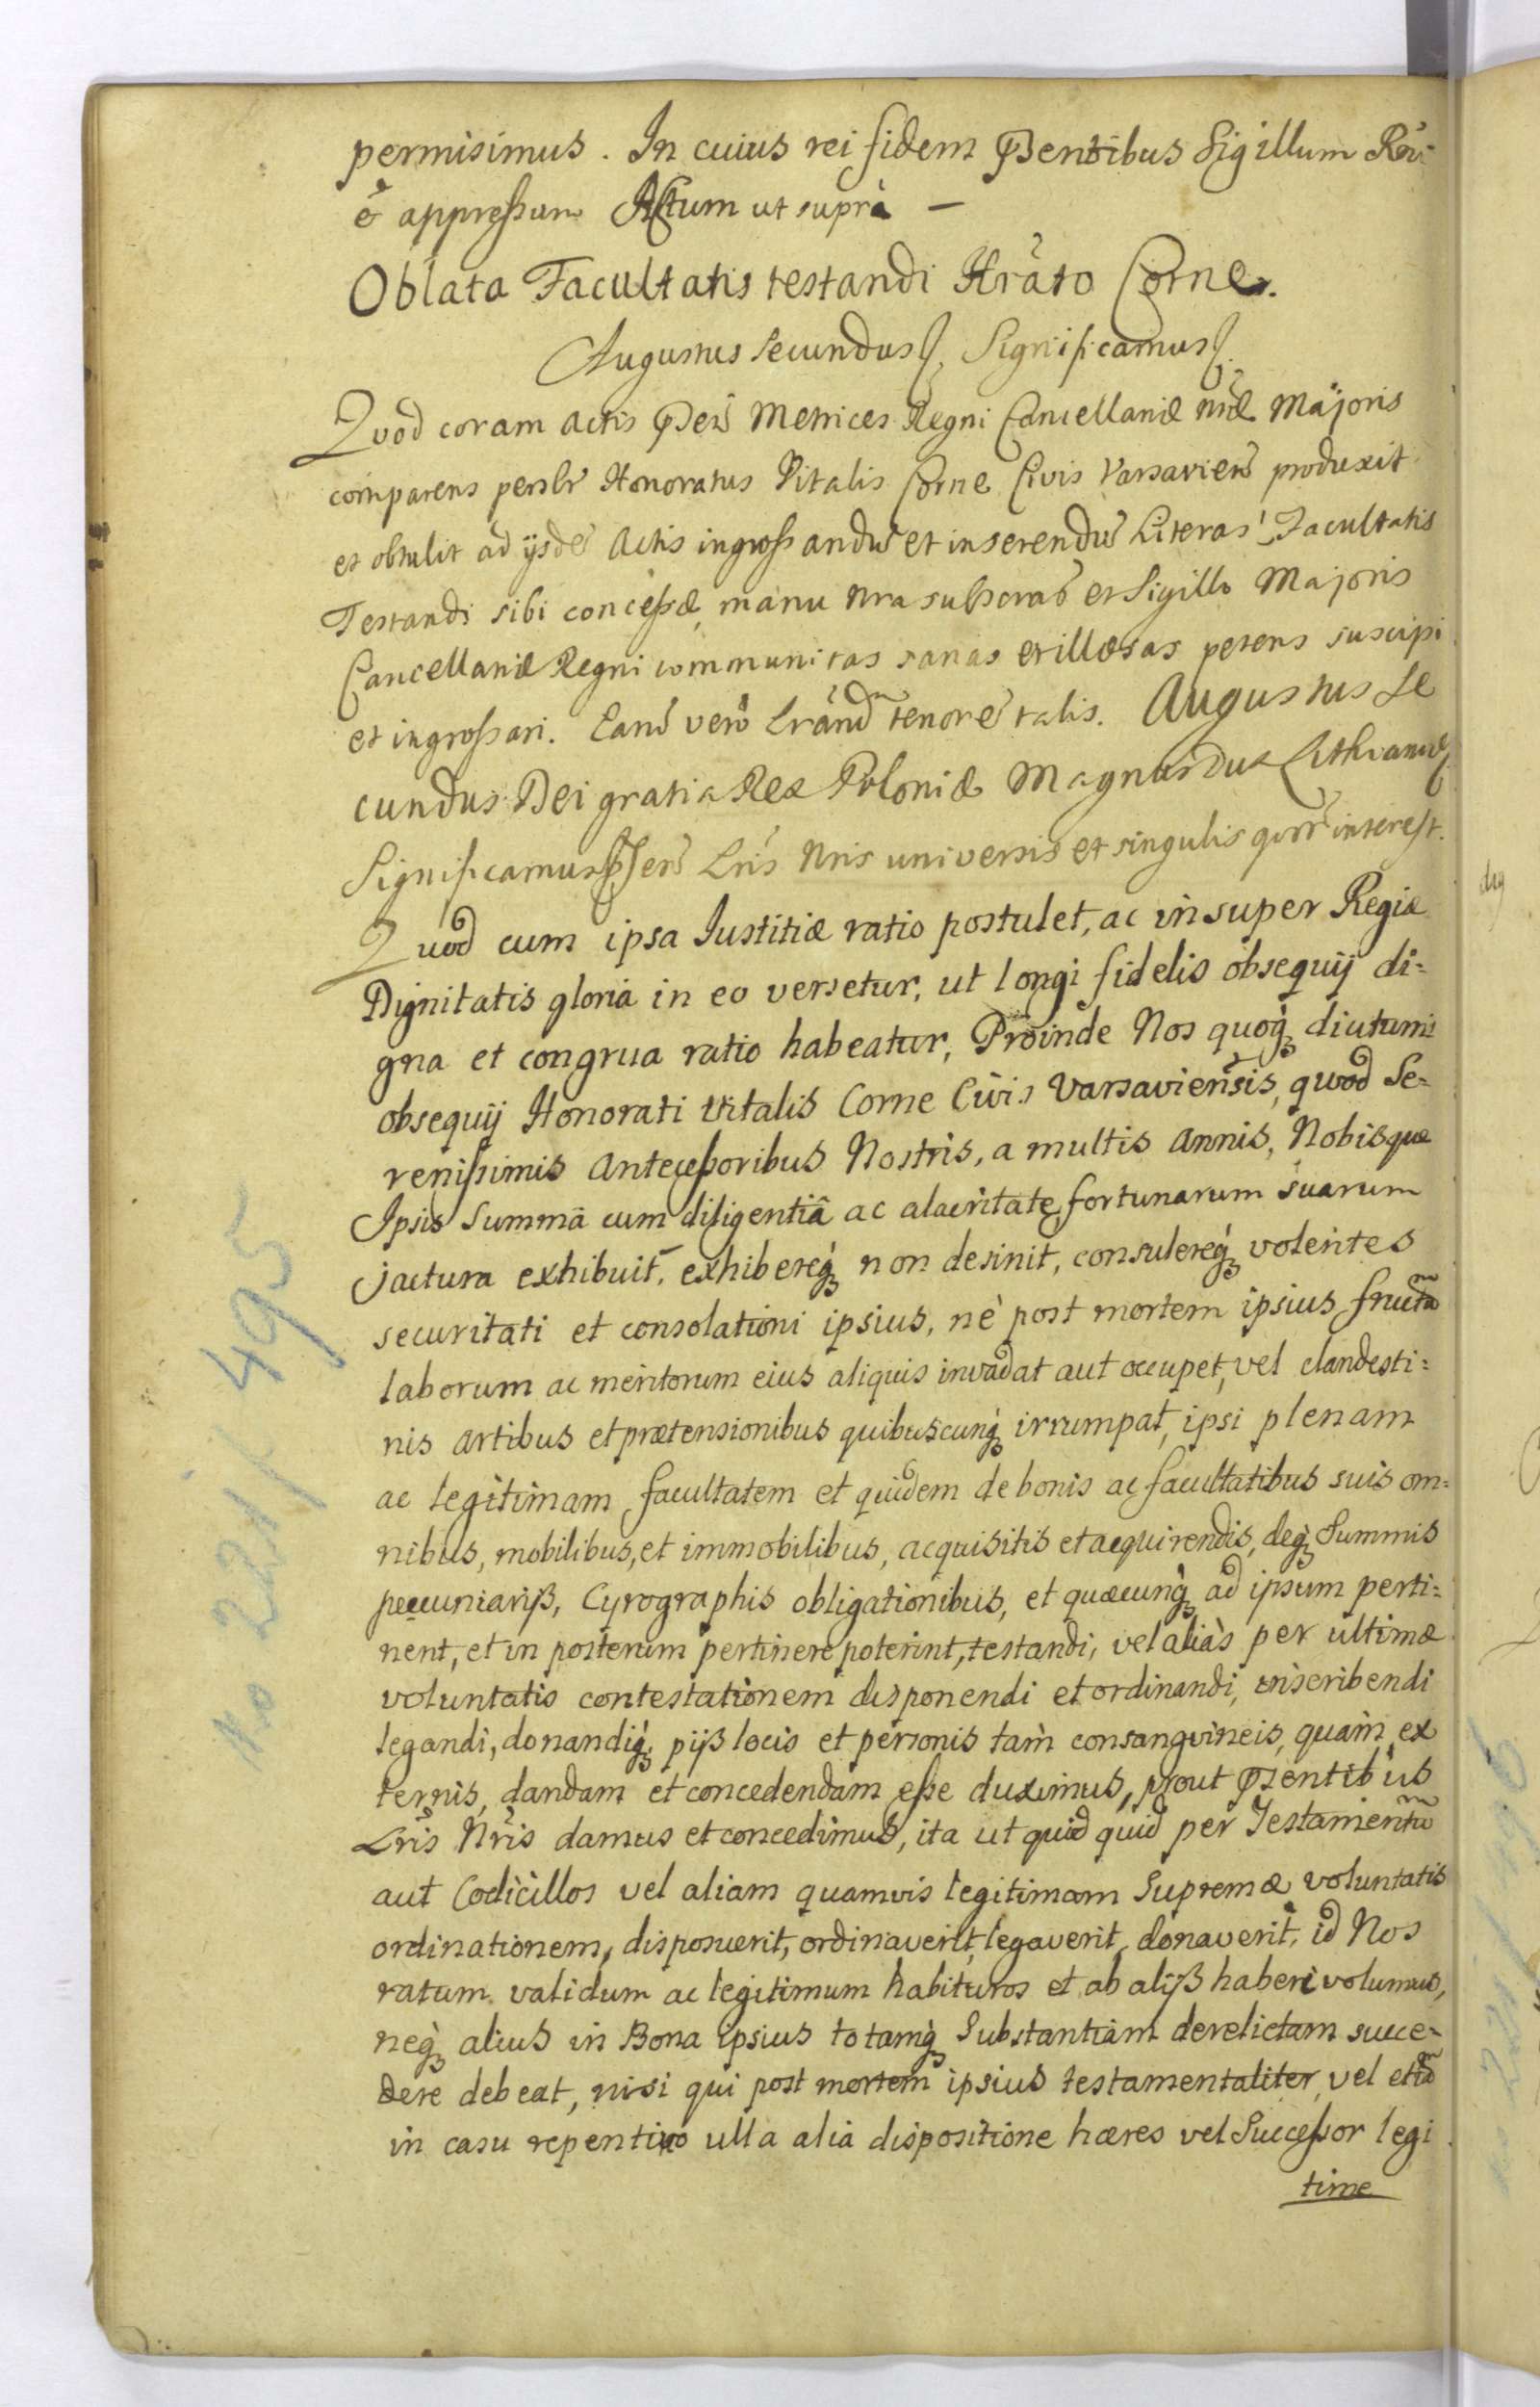 permisimus. In cuius rei fidem Pntibus Sigillum Rni
é appressum Actum ut suprà —
Oblata Facultatis testandi Hrato Corne.
Augustus Secundus Significamus
Quod coram Actis Pntibus Metrices Regni Cancellariæ nræ Majoris
comparens persolr Honoratus Vitalis Corne Civis Varsavien produxit
et obtulit ad ijsdē Actis ingrossandū et inserendū Literas Facultatis
Testandi sibi concessæ, manu nra subscras et Sigillo Majoris
Cancellariæ Regni communitas sanas et illæsas petens suscipi
et ingrossari. Eand verò Lrand tenorē talis. Augustus Se
cundus Dei gratia Rex Poloniæ Magnus Dux Lithvaniæ
Significamus Pnt Lris Nris universis et singulis quor interest.
Quod cum ipsa Iustitiæ ratio postulet, ac insuper Regiæ
Dignitatis gloria in eo versetur, ut longi fidelis obsequij di=
gna et congrua ratio habeatur, Proinde Nos quoq, diuturni
obsequij Honorati Vitalis Corne Civis Varsaviensis, quod Se=
renissimis Antecessoribus Nostris, a multis Annis, Nobisque
Ipsis summâ cum diligentiâ ac alacritate, fortunarum suarum
jactura exhibuit, exhibereq, non desinit, consulereq, volentes
securitati et consolationi ipsius, nè post mortem ipsius fructū
laborum ac meritorum eius aliquis invadat aut occupet, vel clandesti=
nis artibus et prætensionibus quibuscunq, irrumpat, ipsi plenam
ac legitimam facultatem et quidem de bonis ac facultatibus suis om=
nibus, mobilibus, et immobilibus, acquisitis et acquirendis, deq, Summis
pecuniarijs, Cyrographis obligationibus, et quæcunq, ad ipsum perti=
nent, et in posterum pertinere poterint, testandi, vel aliàs per ultimæ
voluntatis contestationem disponendi et ordinandi, inscribendi
legandi, donandiq, pijs locis et personis tàm consangvineis, quàm ex
ternis, dandam et concedendam esse duximus, prout Psentibus
Lris Nris damus et concedimus, ita ut quid quid per Testamentū
aut Codicillos vel aliam quamvis legitimam Supremæ voluntatis
ordinationem, disposuerit, ordinaverit, legaverit, donaverit, id Nos
ratum validum ac legitimum habituros et ab alijs haberi volumus,
neq, alius in Bona ipsius totamq, Substantiam derelictam succe=
dere debeat, nisi qui post mortem ipsius testamentaliter, vel etiā
in casu repentino ulla alia dispositione hæres vel Successor legi
time
No 221/ 495